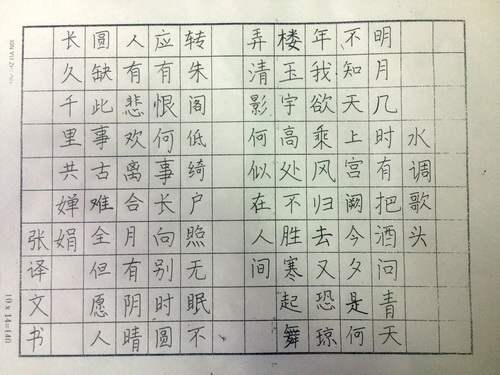 水调歌头
明月几时有把酒问青天
不知天上宫阙今夕是何
年我欲乘风归去又恐琼
楼玉宇高处不胜寒起舞
弄清影何似在人间
转朱阁低绮户照无眠不
应有恨何事长向别时圆
人有悲欢离合月有阴晴
圆缺此事古难全但愿人
长久千里共婵娟
张译文书
10 x 14=140